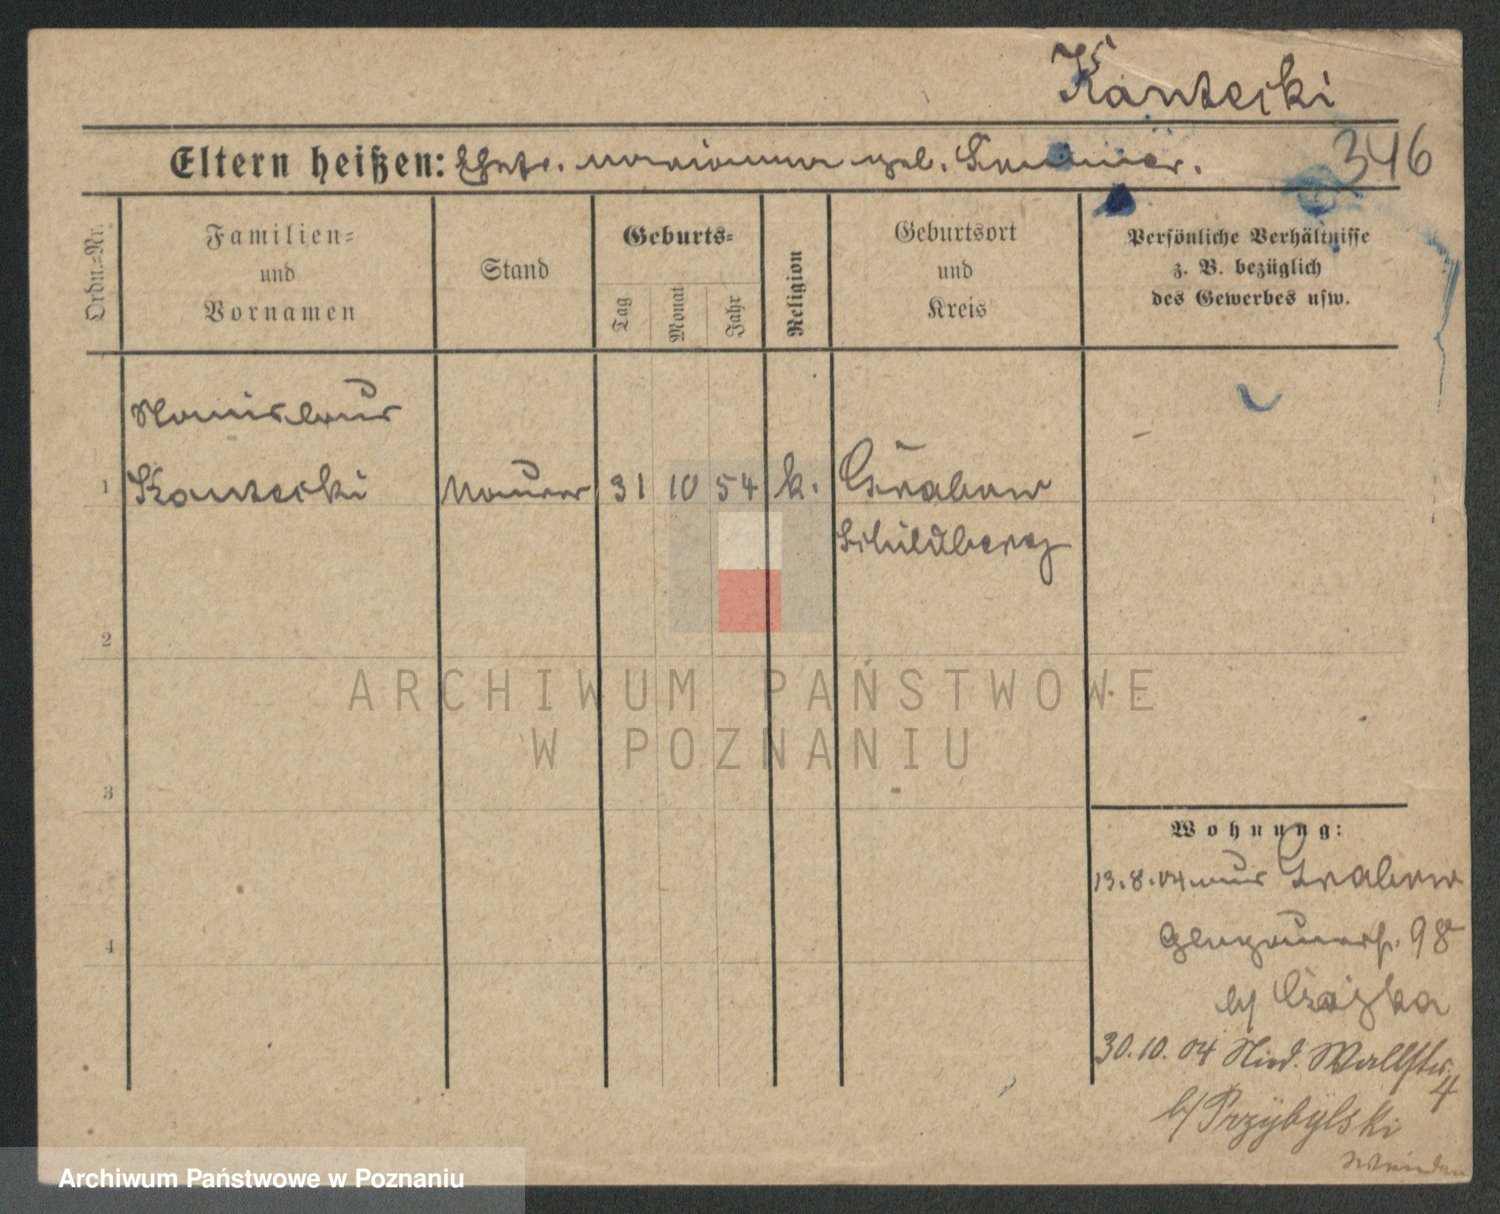 Kantecki
346
Eltern heißen: Ehefr. Marianna geb.
Ordn.-Nr.
Familien-
und
Vornamen
Stand
Geburts-
Tag
Monat
Jahr
Religion
Geburtsort
und
Kreis
Persönliche Verhältnisse
z. B. bezüglich
des Gewerbes usw.
Stanislaus
1 Kantecki Maurer 31 10 54 k. Grabow
Schildberg
2
ARCHIWUM PAŃSTWOWE
W POZNANIU
3
Wohnung:
13.8.04 aus Grabow
Glogauerstr. 98
b/
4
30.10.04 Nied. Wallstr.
4
b/ Przybylski
Archiwum Państwowe w Poznaniu